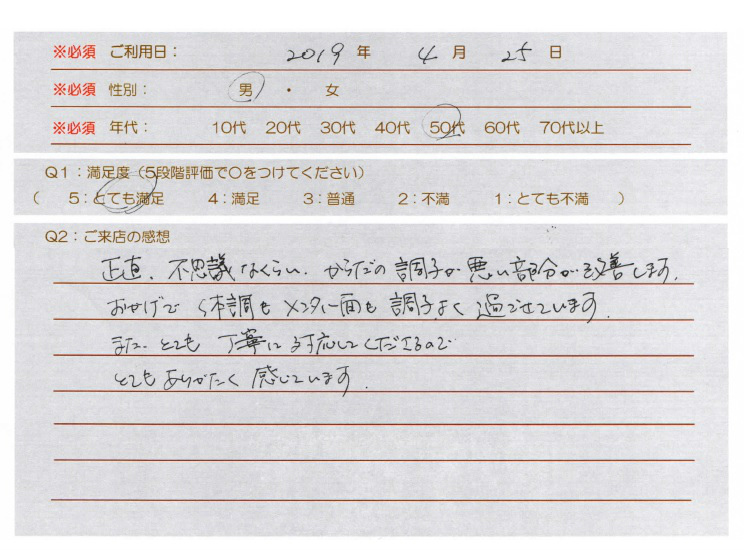 ※必須 ご利用日： 2019 年 4 月 25 日
※必須 性別： 男 ・ 女
※必須 年代： 10代 20代 30代 40代 50代 60代 70代以上
Q1：満足度（5段階評価で○をつけてください）
（ 5：とても満足 4：満足 3：普通 2：不満 1：とても不満 ）
Q2：ご来店の感想
正直、不思議なくらい、からだの調子が悪い部分が改善します。
おかげで体調もメンタル面も調子よく過ごせています。
また、とても丁寧に対応してくださるので
とてもありがたく感じています。